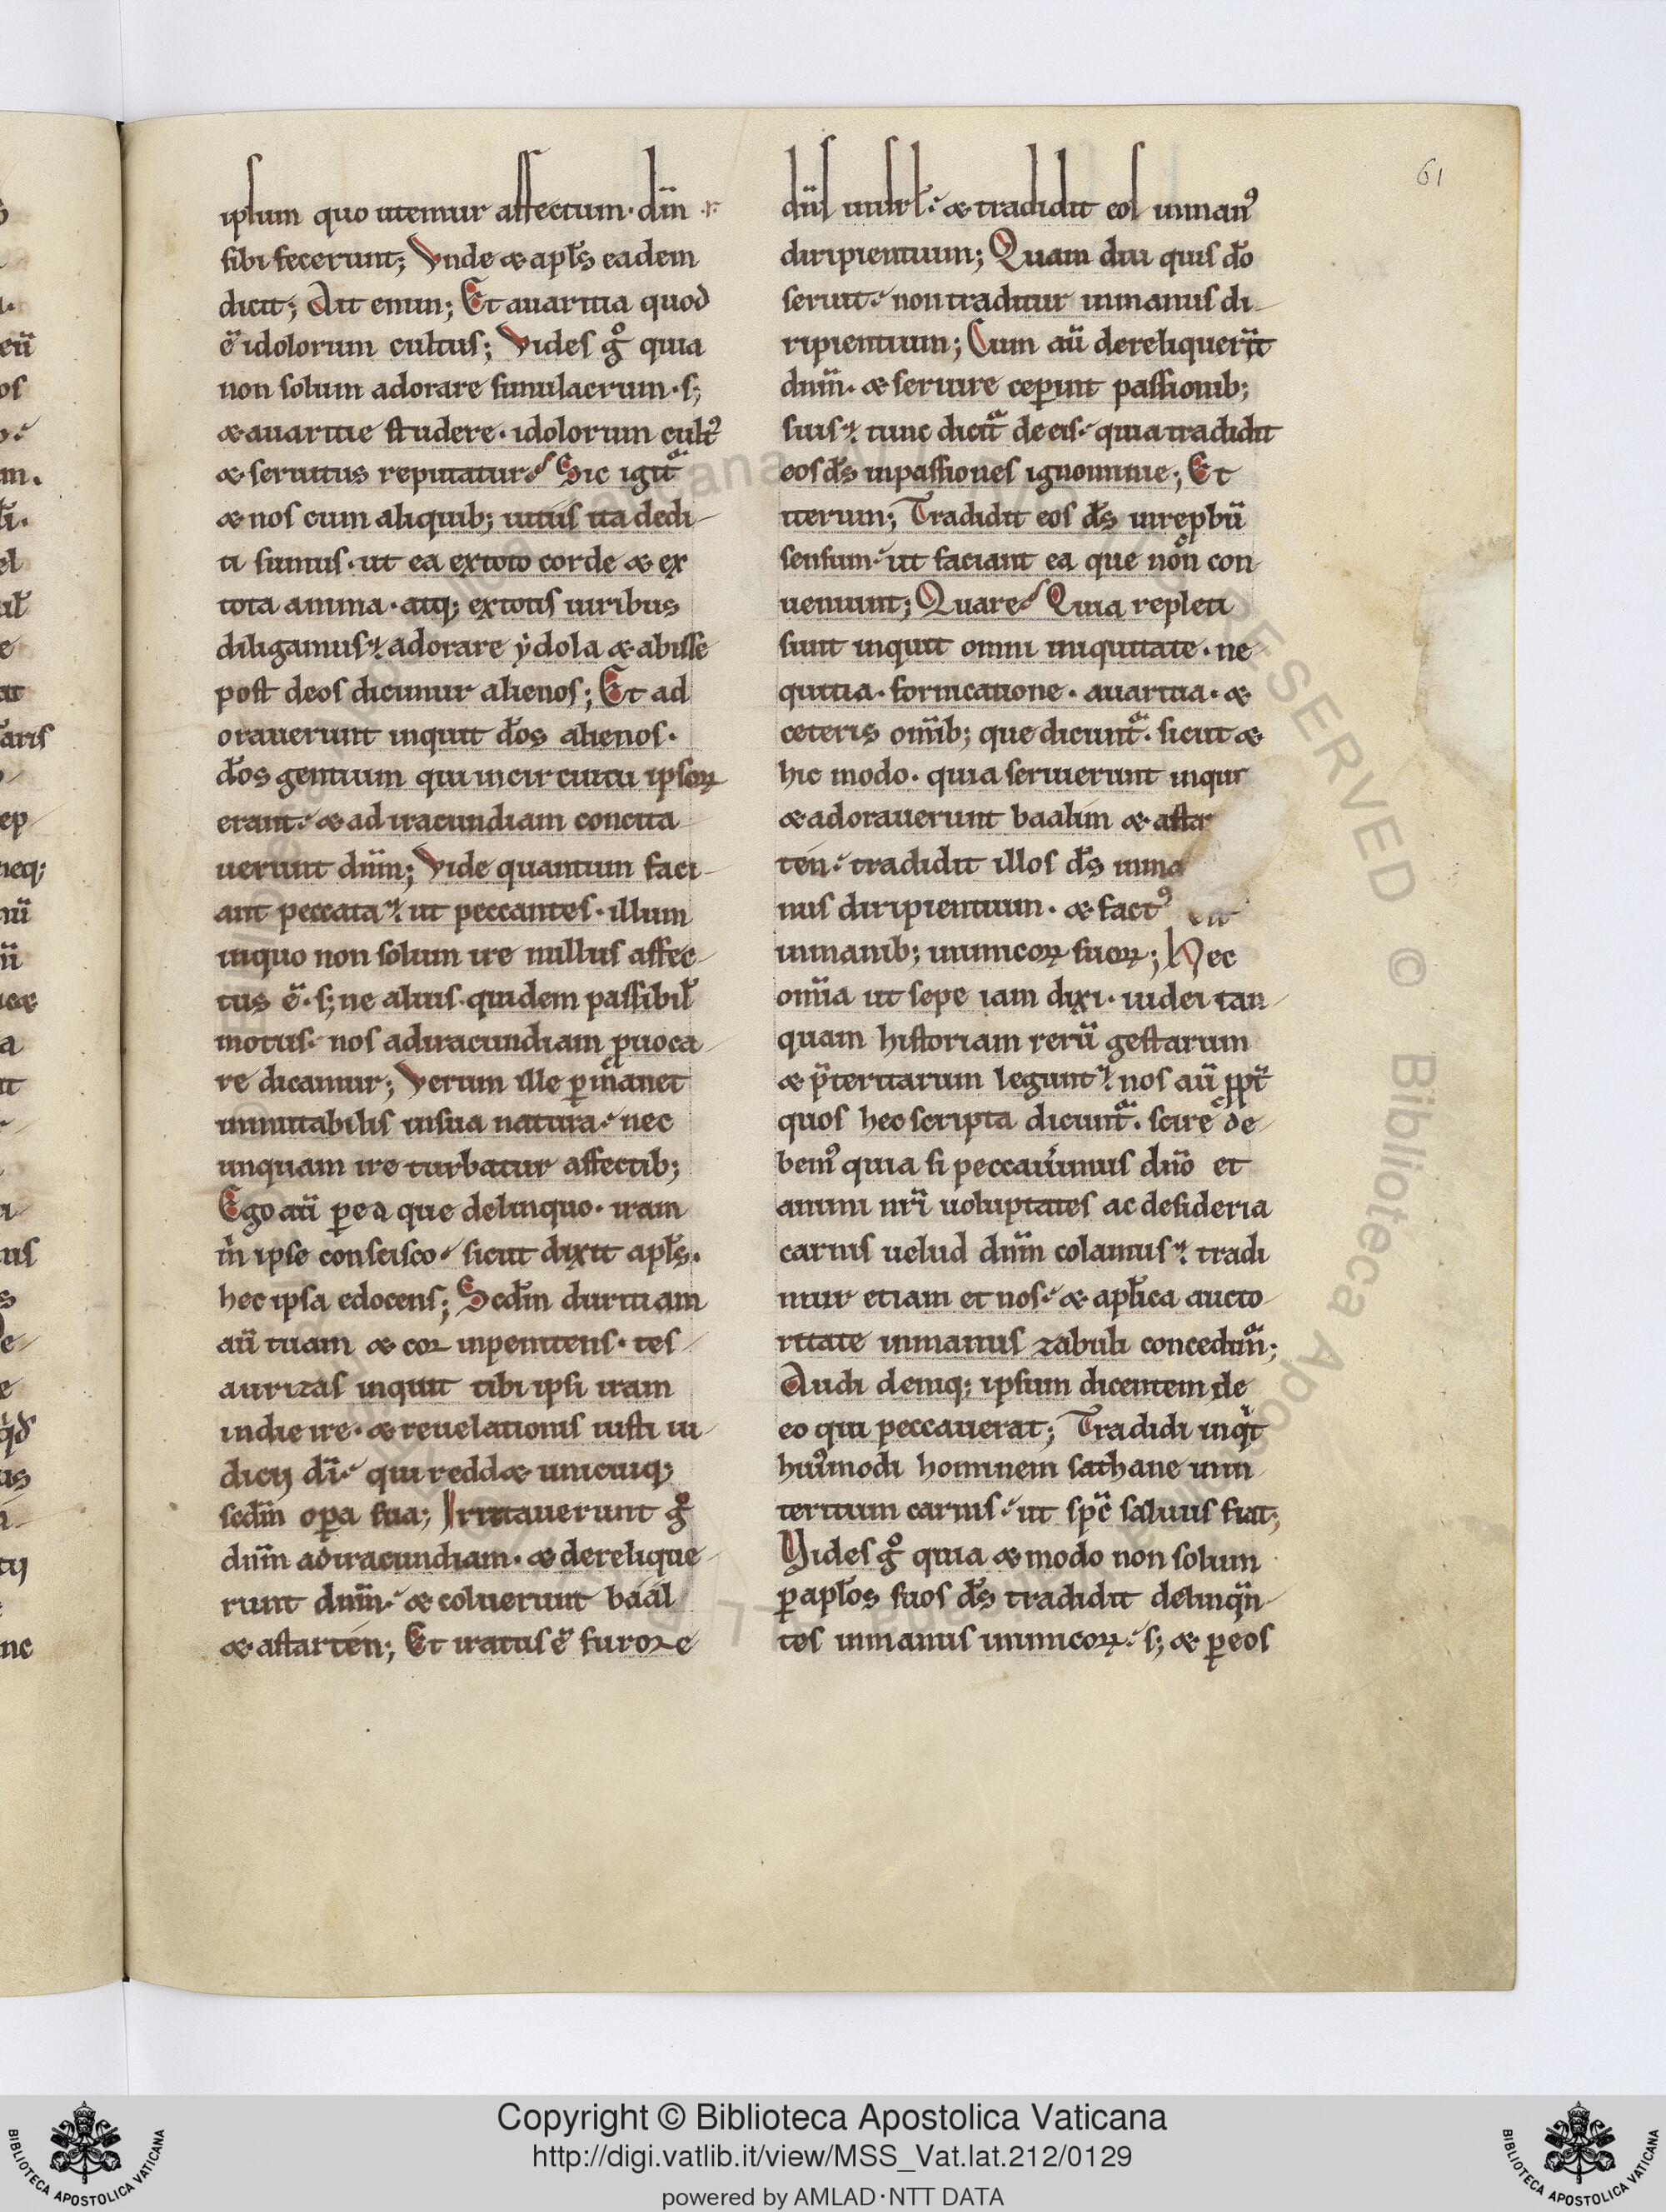 61
ipsum quo utemur affectum · dm̅
sibi fecerunt; Vnde & apl̅s eadem
dicit; Ait enim; Et auaritia quod
e̅ idolorum cultus; Vides gͦ quia
non solum adorare simulacrum · s;
& auaritie studere · idolorum cultꝰ
& seruitus reputatur. Sic igit᷑
& nos cum aliquib; uitiis ita dedi-
ti sumus · ut ea extoto corde & ex
tota anima · atq; extotis uiribus
diligamus. adorare ydola & abisse
post deos dicimur alienos; Et ad
orauerunt inquit d̅os alienos ·
d̅os gentium qui incircuitu ipsoꝝ
erant. & ad iracundiam concita-
uerunt dn̅m; Vide quantum faci-
ant peccata. ut peccantes · illum
inquo non solum ire nullus affec-
tus e̅ · s; ne alius quidem passibil̅
motus. nos adiracundiam ꝓuoca-
re dicamur; Verum ille ꝑmanet
inmutabilis insua natura. nec
unquam ire turbatur affectib;
Ego au̅ ꝑ ea que delinquo · iram
m̅ ipse conscisco. sicut dixit apl̅s.
hec ipsa edocens; Scd̅m duritiam
au̅ tuam & coꝛ inpenitens · tes-
aurizas inquit tibi ipsi iram
indie ire · & reuelationis iusti iu-
dicij di̅. qui redd& unicuiq;
scd̅m oꝑa sua; Irritauerunt gͦ
dn̅m adiracundiam · & derelique-
runt dn̅m. & coluerunt baál
& astarten; Et iratus e̅ furoꝛe
dn̅s inisrl̅. & tradidit eos inmanꝰ
diripientium; Quam diu quis d̅o
seruit. non traditur inmanus di-
ripientium; Cum au̅ dereliquerit
dnm̅. & seruire ceꝑint passionib;
suis. tunc dicit᷑ de eis. quia tradidit
eos d̅s inpassiones ignominie; Et
iterum; Tradidit eos d̅s inrepbu̅
sensum. ut faciant ea que non con-
ueniunt; Quare. Quia repleti
sunt inquit omni iniquitate · ne-
quitia · fornicatione · auaritia · &
ceteris omib; que dicunt᷑. sicut &
hic modo · quia seruierunt inqui
& adorauerunt baalim & astar
ten. tradidit illos d̅s inma
nus diripientium · & factꝰ est
inmanib; inimicoꝝ suoꝝ; Hec
om̅ia ut sepe iam dixi · iudei tan-
quam historiam reru̅ gestarum
& p̅teritarum legunt. nos au̅ ꝓpt̅
quos hec scripta dicunt᷑. scire de-
bemꝰ quia si peccauimus dn̅o et
animi nr̅i uoluptates ac desideria
carnis uelud dn̅m colamus. tradi
mur etiam et nos. & apl̅ica aucto-
ritate inmanus zabuli concedim᷑;
Audi deniq; ipsum dicentem de
eo qui peccauerat; Tradidi inqͥt
huiꝰmodi hominem sathane inin
teritum carnis. ut sp̅c saluus fiat;
Vides gͦ quia & modo non solum
ꝑ apl̅os suos d̅s tradidit delinqn̅-
tes inmanus inimicoꝝ. s; & ꝑ eos
Copyright © Biblioteca Apostolica Vaticana
http://digi.vatlib.it/view/MSS_Vat.lat.212/0129
powered by AMLAD·NTT DATA
BIBLIOTECA APOSTOLICA VATICANA
BIBLIOTECA APOSTOLICA VATICANA